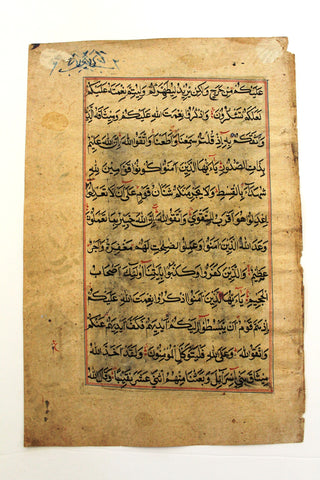 عَلَيْكُمْ مِنْ حَرَجٍ وَلَكِنْ يُرِيدُ لِيُطَهِّرَكُمْ وَلِيُتِمَّ نِعْمَتَهُ عَلَيْكُمْ
لَعَلَّكُمْ تَشْكُرُونَ وَاذْكُرُوا نِعْمَتَ اللهِ عَلَيْكُمْ وَمِيثَاقَهُ الَّذِي
وَاثَقَكُمْ بِهِ إِذْ قُلْتُمْ سَمِعْنَا وَأَطَعْنَا وَاتَّقُوا اللهَ إِنَّ اللهَ عَلِيمٌ
بِذَاتِ الصُّدُورِ يَا أَيُّهَا الَّذِينَ آمَنُوا كُونُوا قَوَّامِينَ لِلهِ
شُهَدَاءَ بِالْقِسْطِ وَلَا يَجْرِمَنَّكُمْ شَنَآنُ قَوْمٍ عَلَى أَلَّا تَعْدِلُوا
اعْدِلُوا هُوَ أَقْرَبُ لِلتَّقْوَى وَاتَّقُوا اللهَ إِنَّ اللهَ خَبِيرٌ بِمَا تَعْمَلُونَ
وَعَدَ اللهُ الَّذِينَ آمَنُوا وَعَمِلُوا الصَّالِحَاتِ لَهُمْ مَغْفِرَةٌ وَأَجْرٌ
عَظِيمٌ وَالَّذِينَ كَفَرُوا وَكَذَّبُوا بِآيَاتِنَا أُولَئِكَ أَصْحَابُ
الْجَحِيمِ يَا أَيُّهَا الَّذِينَ آمَنُوا اذْكُرُوا نِعْمَتَ اللهِ عَلَيْكُمْ
إِذْ هَمَّ قَوْمٌ أَنْ يَبْسُطُوا إِلَيْكُمْ أَيْدِيَهُمْ فَكَفَّ أَيْدِيَهُمْ عَنْكُمْ
وَاتَّقُوا اللهَ وَعَلَى اللهِ فَلْيَتَوَكَّلِ الْمُؤْمِنُونَ وَلَقَدْ أَخَذَ اللهُ
مِيثَاقَ بَنِي إِسْرَائِيلَ وَبَعَثْنَا مِنْهُمُ اثْنَيْ عَشَرَ نَقِيبًا وَقَالَ اللهُ